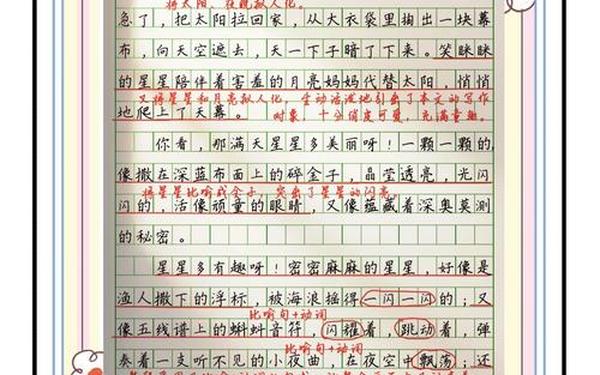 将太阳、夜晚拟人化。
急了，把太阳拉回家，从大衣袋里掏出一块幕
布，向天空遮去，天一下子暗了下来。笑眯眯
的星星陪伴着害羞的月亮妈妈代替太阳，悄悄
又将星星和月亮拟人化，生动活泼地引出了本文的写作
地爬上了天幕。
对象，十分俏皮可爱，充满童趣。
你看，那满天星星多美丽呀！一颗一颗的，
像撒在深蓝布面上的碎金子，晶莹透亮，光闪
将星星比喻成金子，突出了星星的闪亮。
闪的，活像顽童的眼睛，又像蕴藏着深奥莫测
的秘密。
星星多有趣呀！密密麻麻的星星，好像是
渔人撒下的浮标，被海浪摇得一闪一闪的；又
比喻句+动词
像五线谱上的蝌蚪音符，闪耀着，跳动着，弹
比喻句+动词
奏着一支听不见的小夜曲，在夜空中飘荡；还